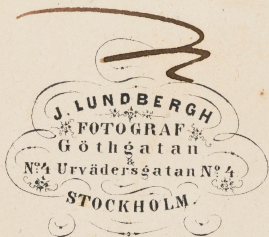 J. LUNDBERGH
FOTOGRAF
Göthgatan
&
No. 4 Urvädersgatan No. 4
STOCKHOLM.